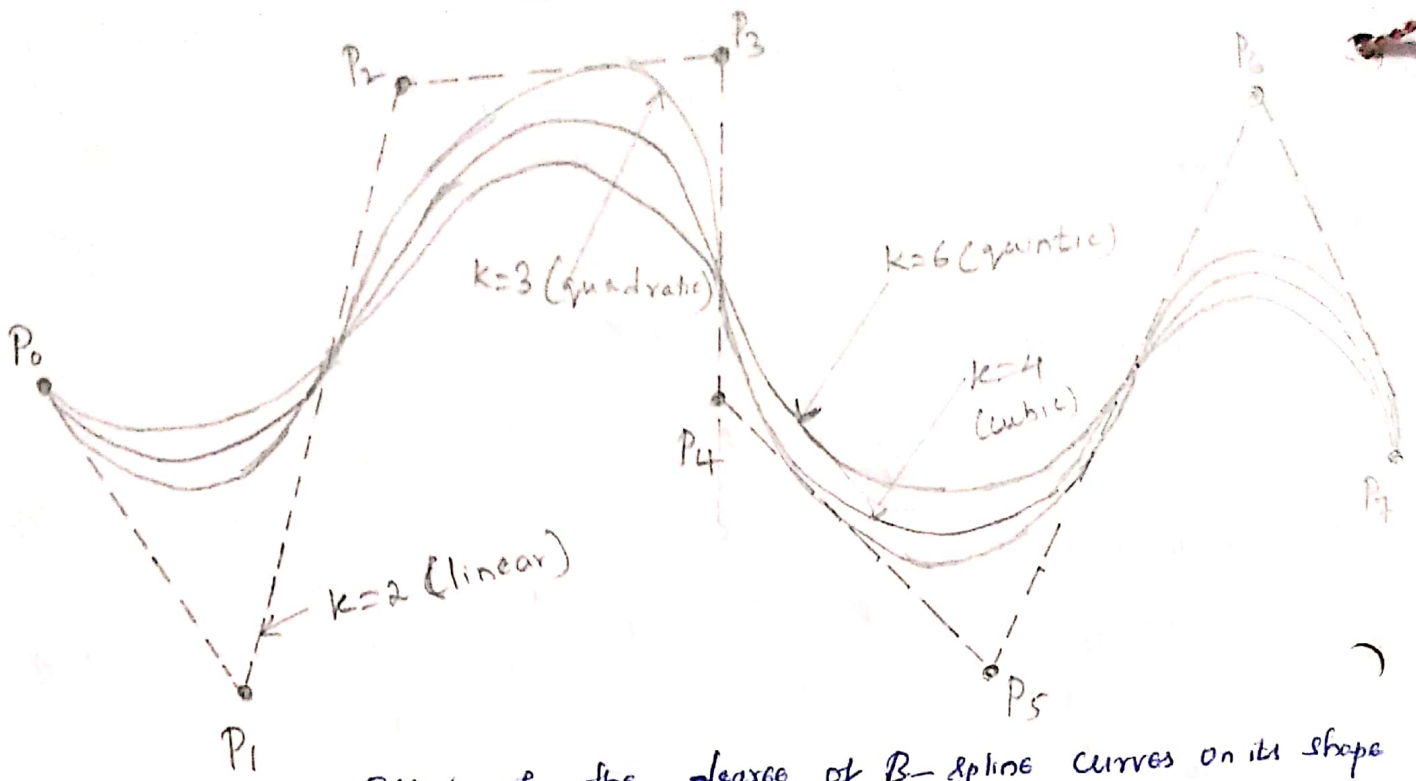 P3
P2
P6
k=3 (quadratic)
k=6 (quintic)
P0
k=4
(cubic)
P4
P7
k=2 (linear)
P5
P1
Effect of the degree of B-spline curves on its shape